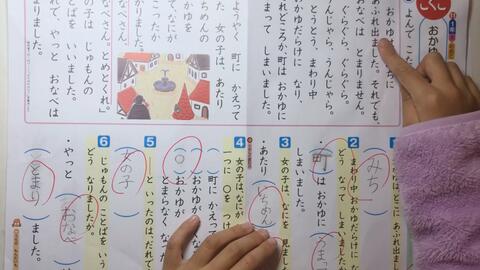 こくご
おかゆ
よんで こた
あふれ出ました。それでも、
おなべは とまりません。
ぐらぐら、ぐらぐら。
うんじゃら、うんじゃら。
とうとう、まわり中
おかゆだらけに なり、
それどころか、町は おかゆに
うまって しまいました。
ようやく 町に かえって
た 女の子は、あたり
ちめんの
女の子は
じゅもんの
とばを いいました。
なべさん、とめとくれ。」
て、やっと おなべは
りました。
1
どこに あふれ出
みち
2
まわり中 おかゆだらけに な
どう なって しまい
町
は おかゆに
しまいました。
3
女の子は、なにを 見まし
あたり
4
女の子は、なにが
一つに ○を つけ
町に かえって
おかゆが
とまらなく な
○
おかゆが
5
と いったのは、だれで
女の子
6
じゅもんの ことばを いう
どう なりましたか。
やっと
おな
ました。
とまり